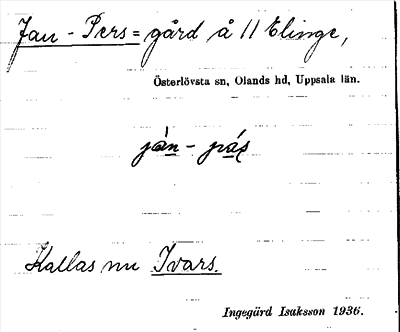 Jan-Pers=gård å 11 Elinge,
Österlövsta sn, Olands hd, Uppsala län.
jàn - pás̨
Kallas nu Ivars.
Ingegärd Isaksson 1936.